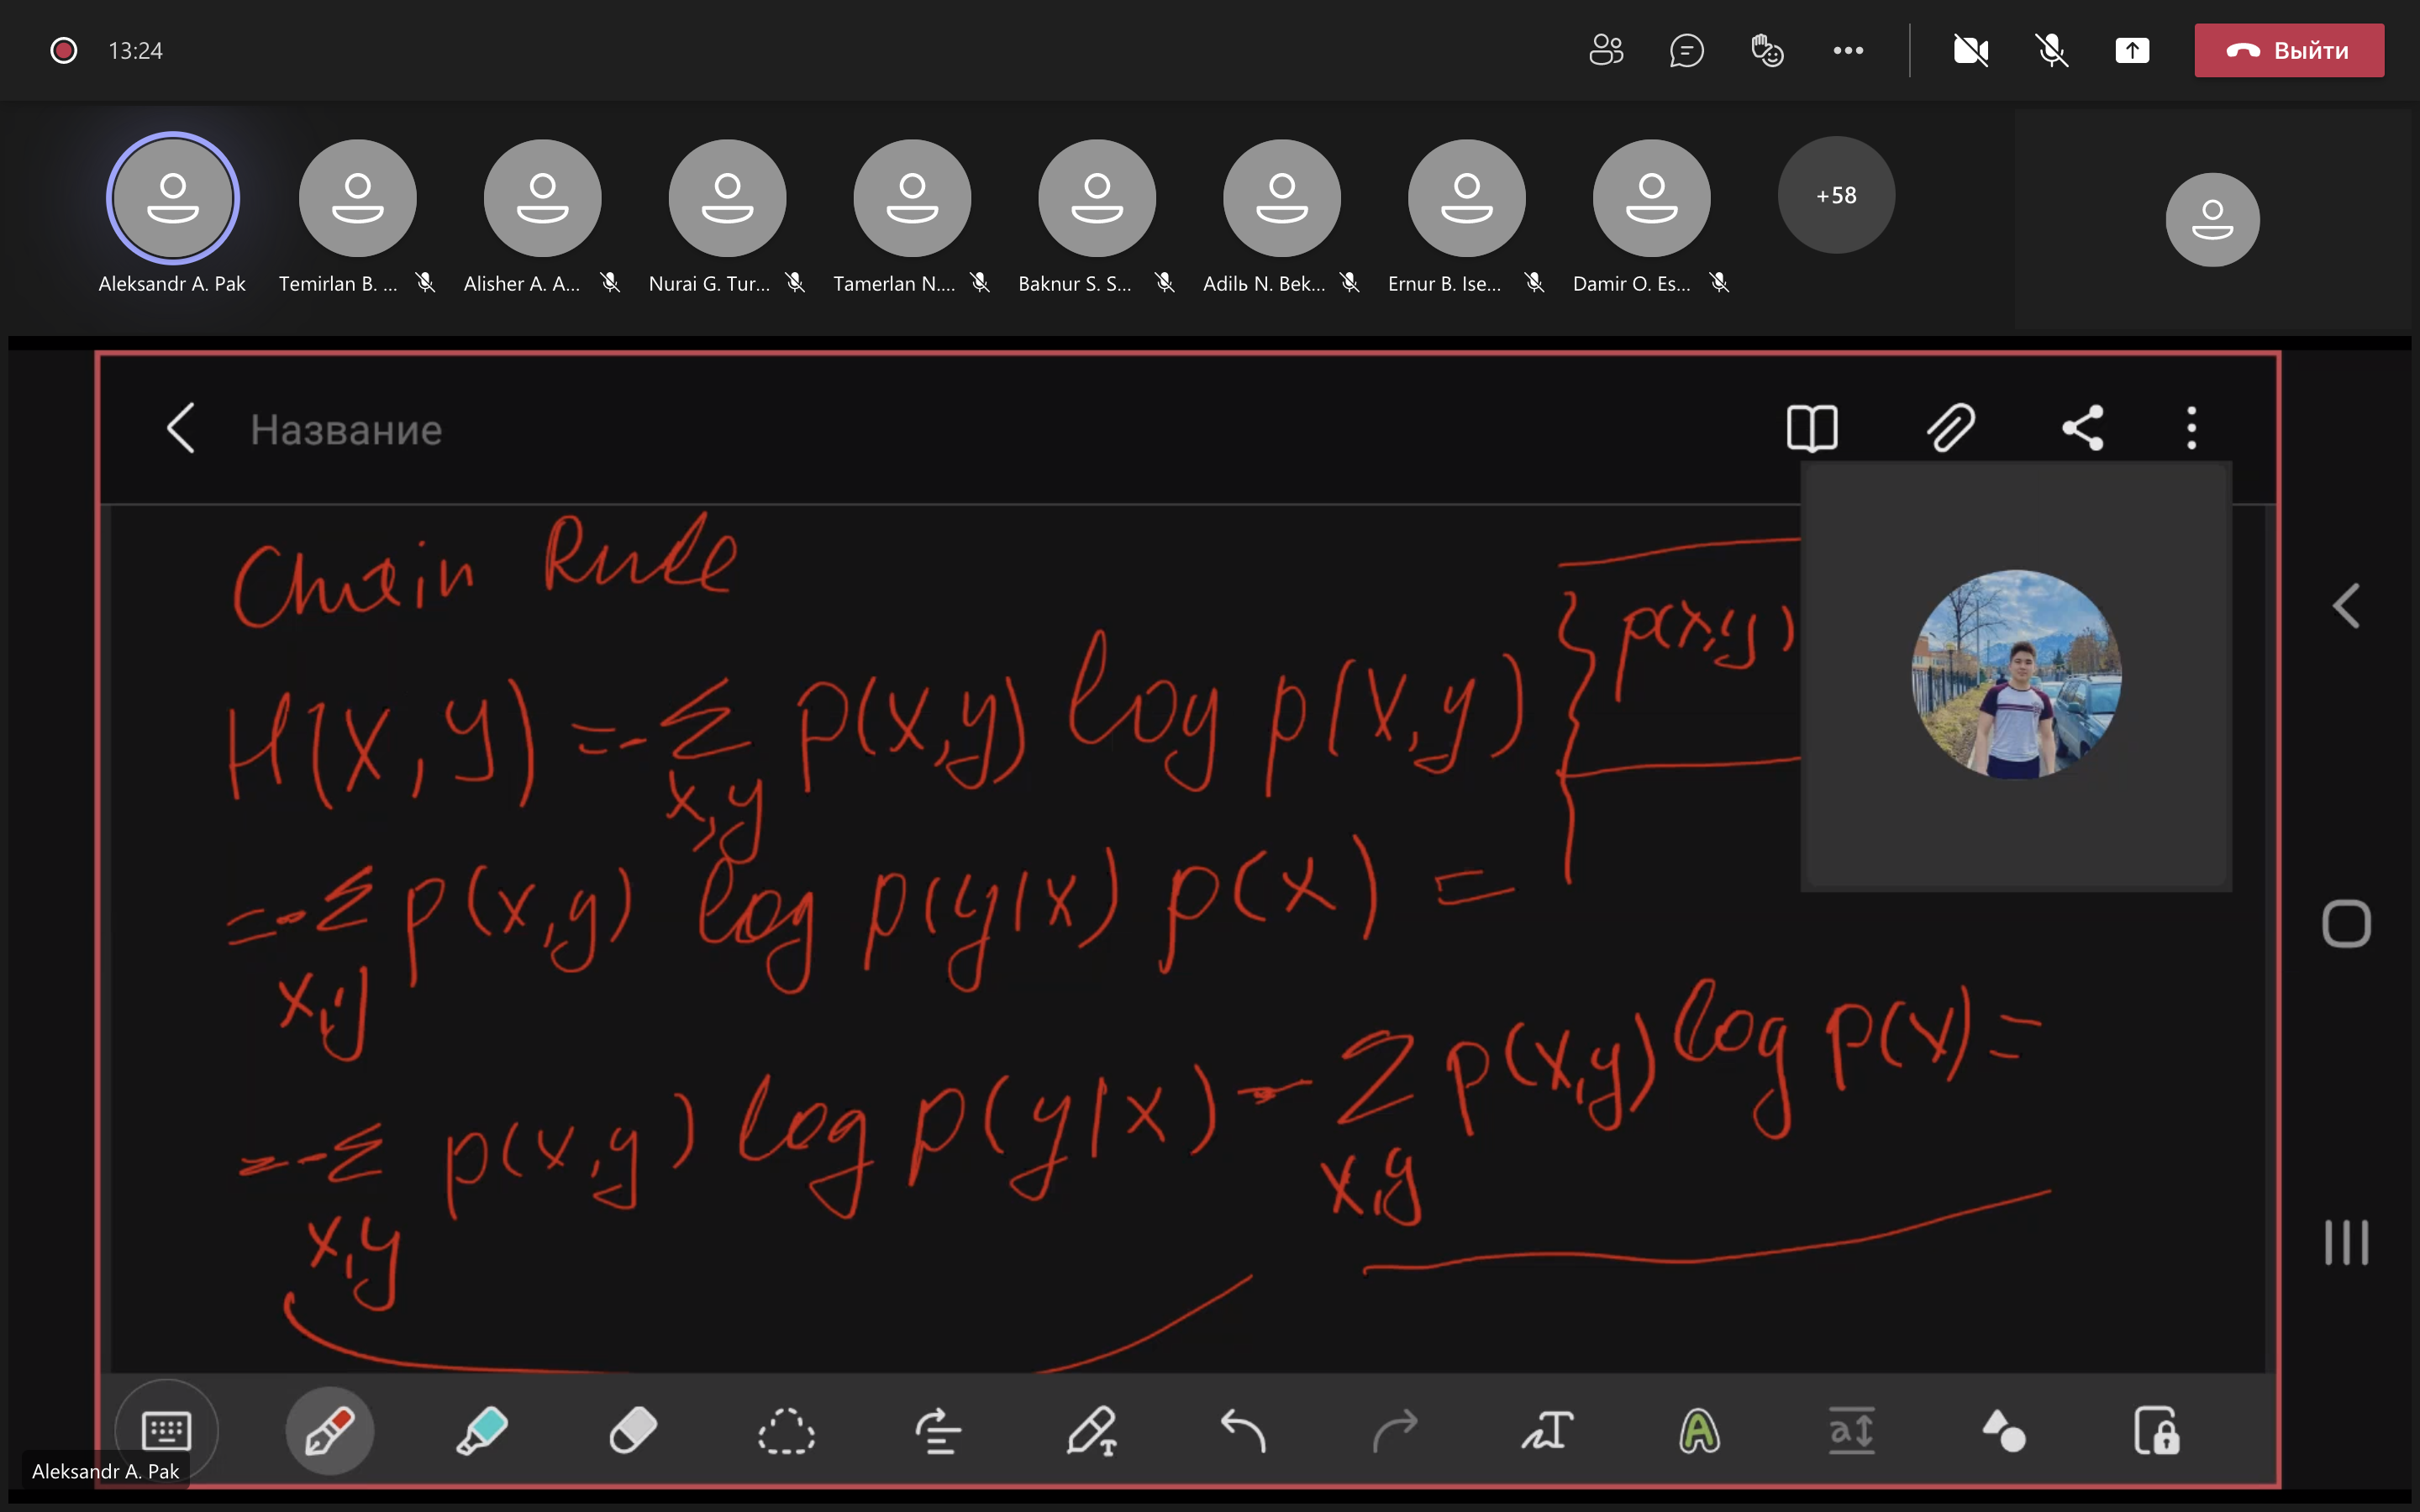 13:24
Выйти
Aleksandr A. Pak
Temirlan B. ...
Alisher A. A...
Nurai G. Tur...
Tamerlan N....
Baknur S. S...
Adilь N. Bek...
Ernur B. Ise...
Damir O. Es...
+58
Название
Chain Rule
H(X,Y) = -∑ p(x,y) log p(x,y) { p(x,y)
x,y
= -∑ p(x,y) log p(y|x) p(x) =
x,y
= -∑ p(x,y) log p(y|x) - ∑ p(x,y) log p(x) =
x,y x,y
Aleksandr A. Pak